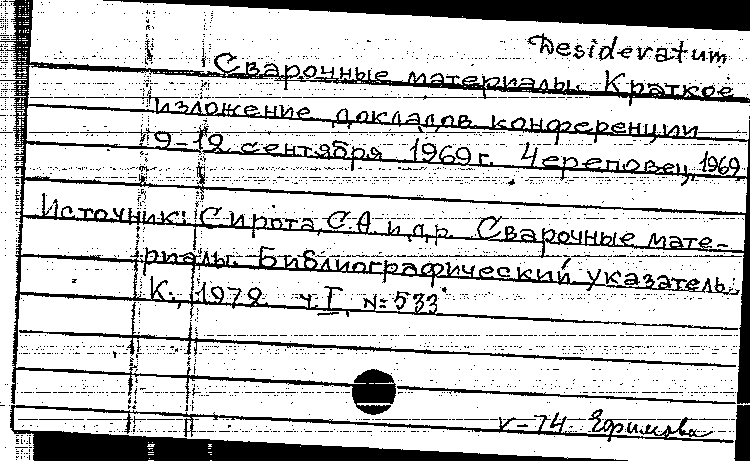 Desideratum
Сварочные материалы. Краткое
изложение докладов конференции
9-12 сентября 1969 г. Череповец, 1969.
Источник: Сирота, С.А. и др. Сварочные мате-
риалы. Библиографический указатель.
К., 1972 ч. I, №533
V-74 Ефимова